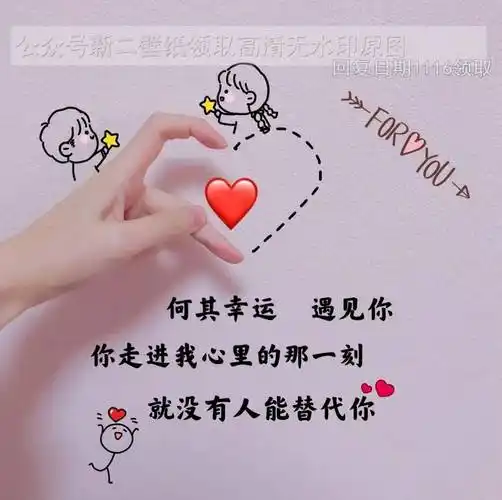 公众号新二壁纸领取高清无水印原图
回复日期1116领取
FOR YOU
何其幸运 遇见你
你走进我心里的那一刻
就没有人能替代你